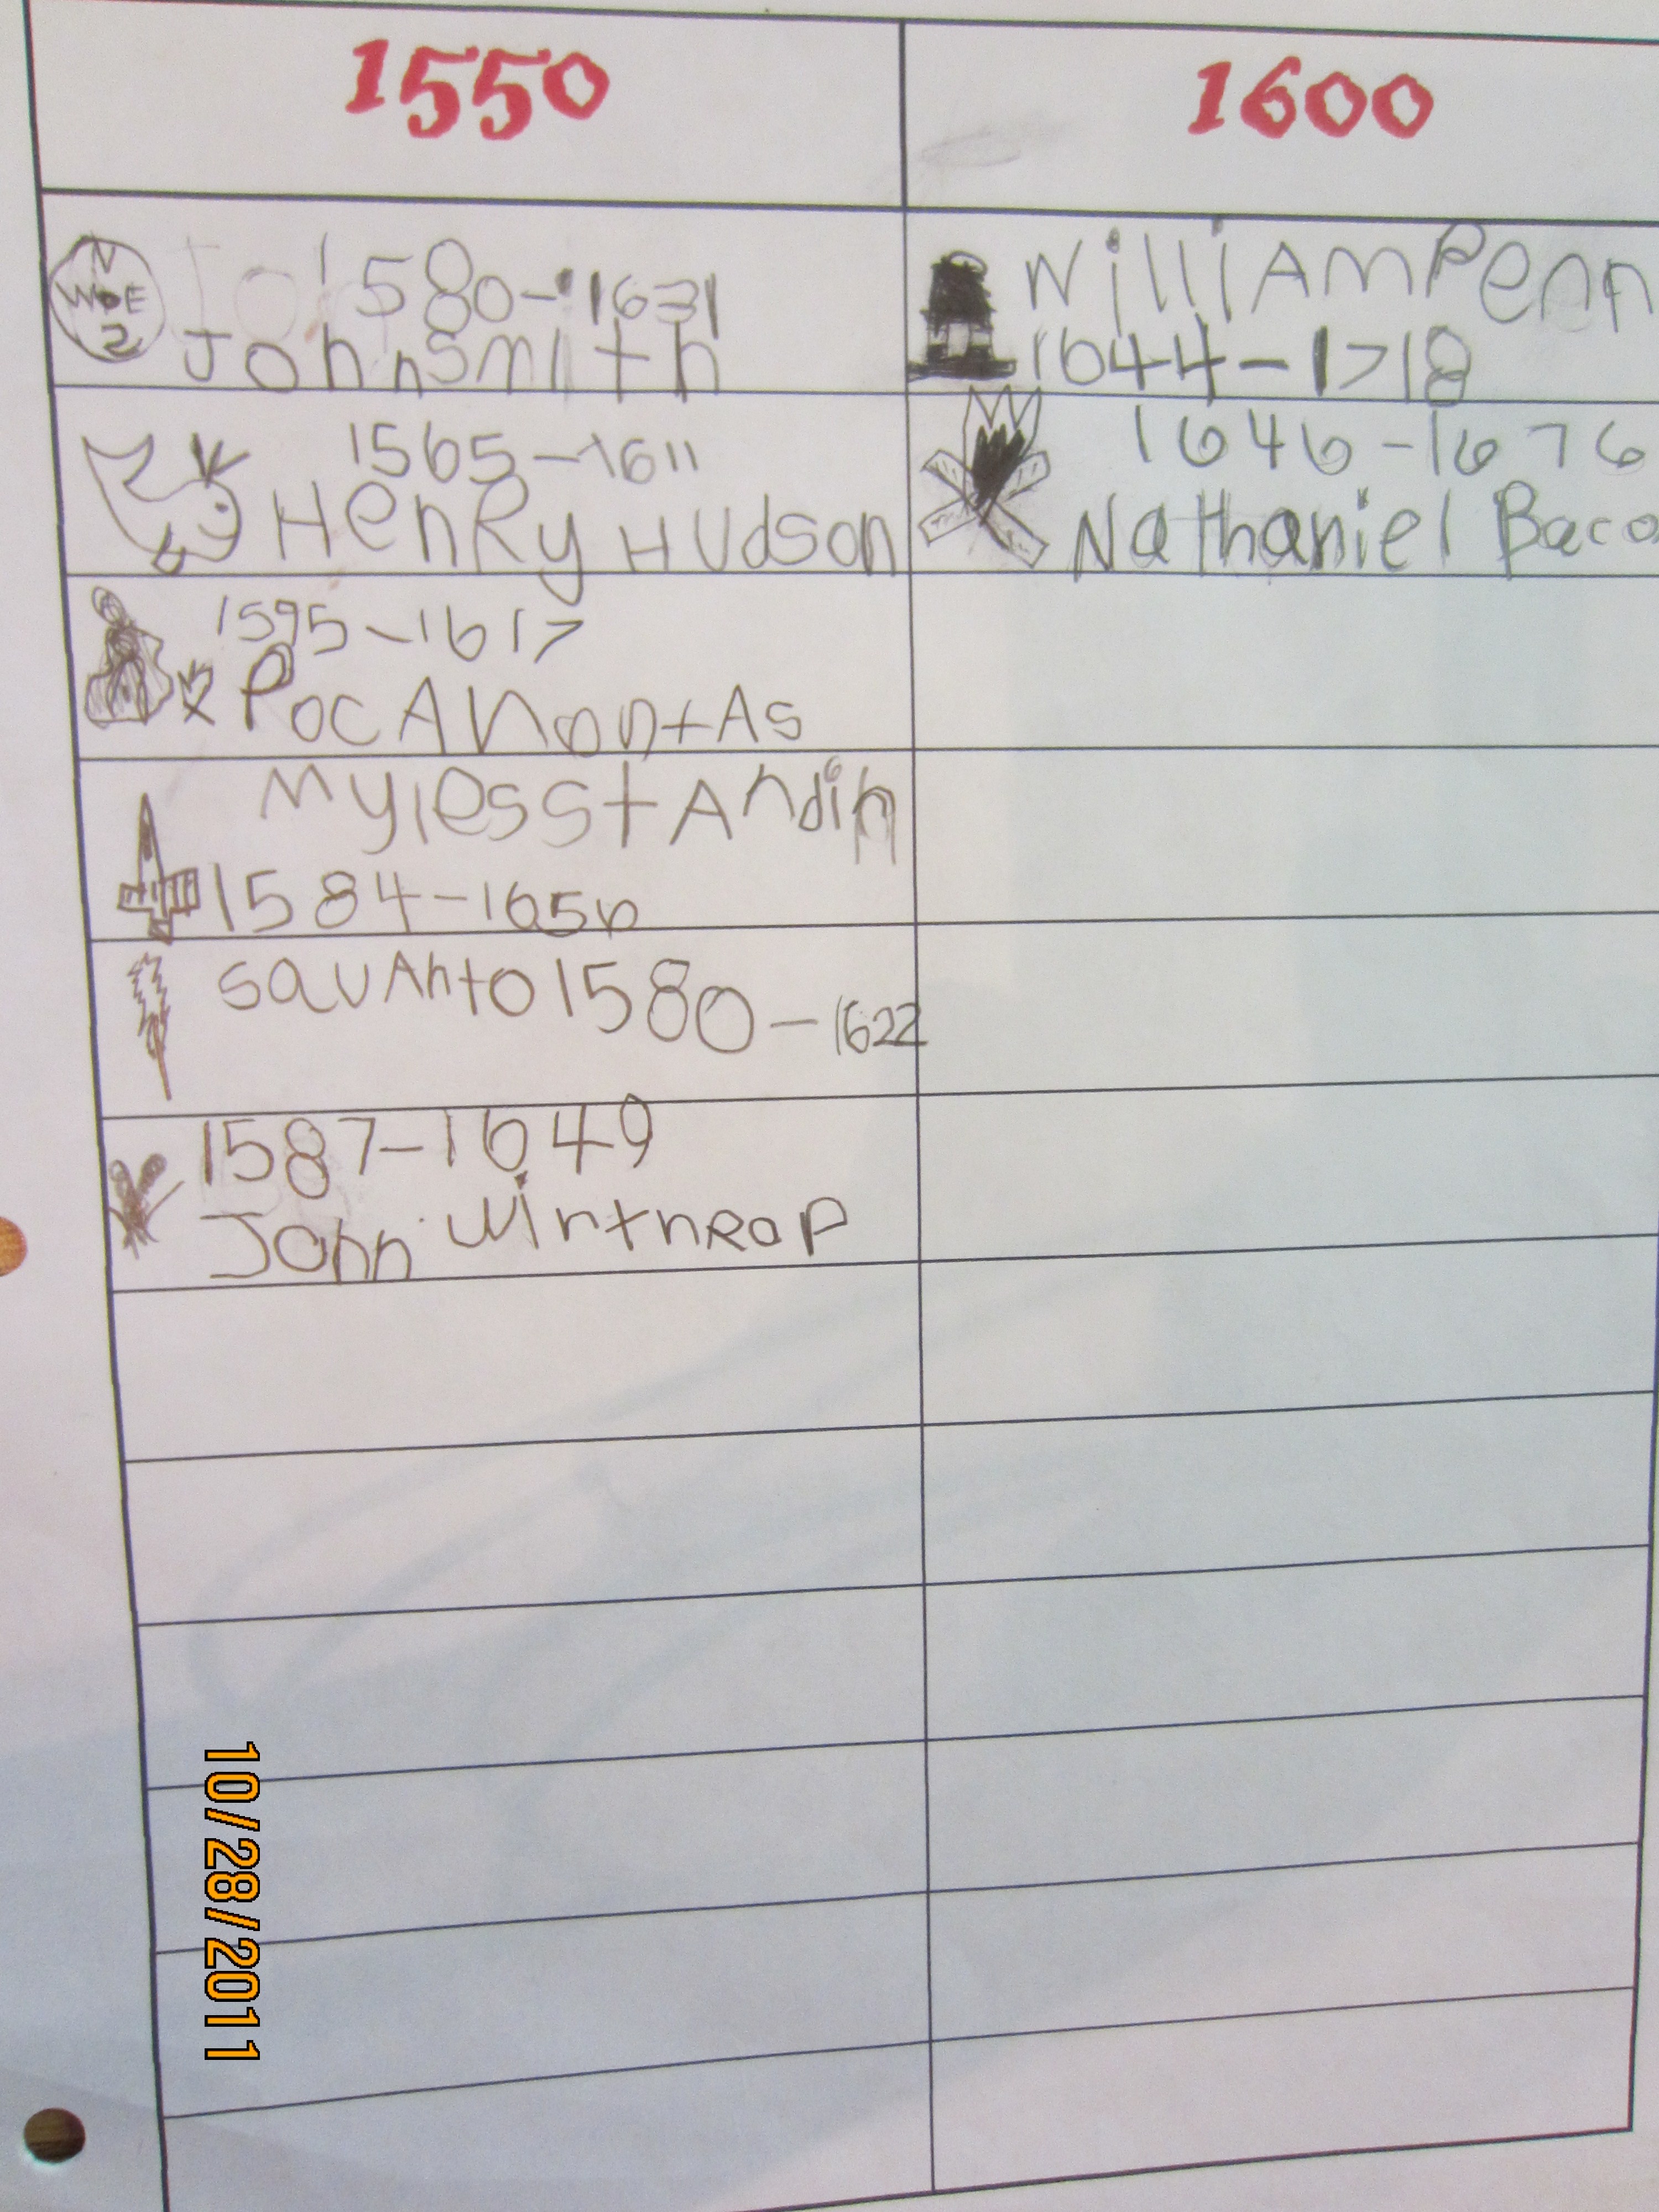 1550
1600
N
W E
1580-1631
John Smith
William Penn
1644-1718
1565-1611
Henry Hudson
1646-1676
Nathaniel Baco
1595-1617
Pocahontas
Myles Standih
1584-1656
Squanto 1580-1622
1587-1649
John Winthrop
10/28/2011